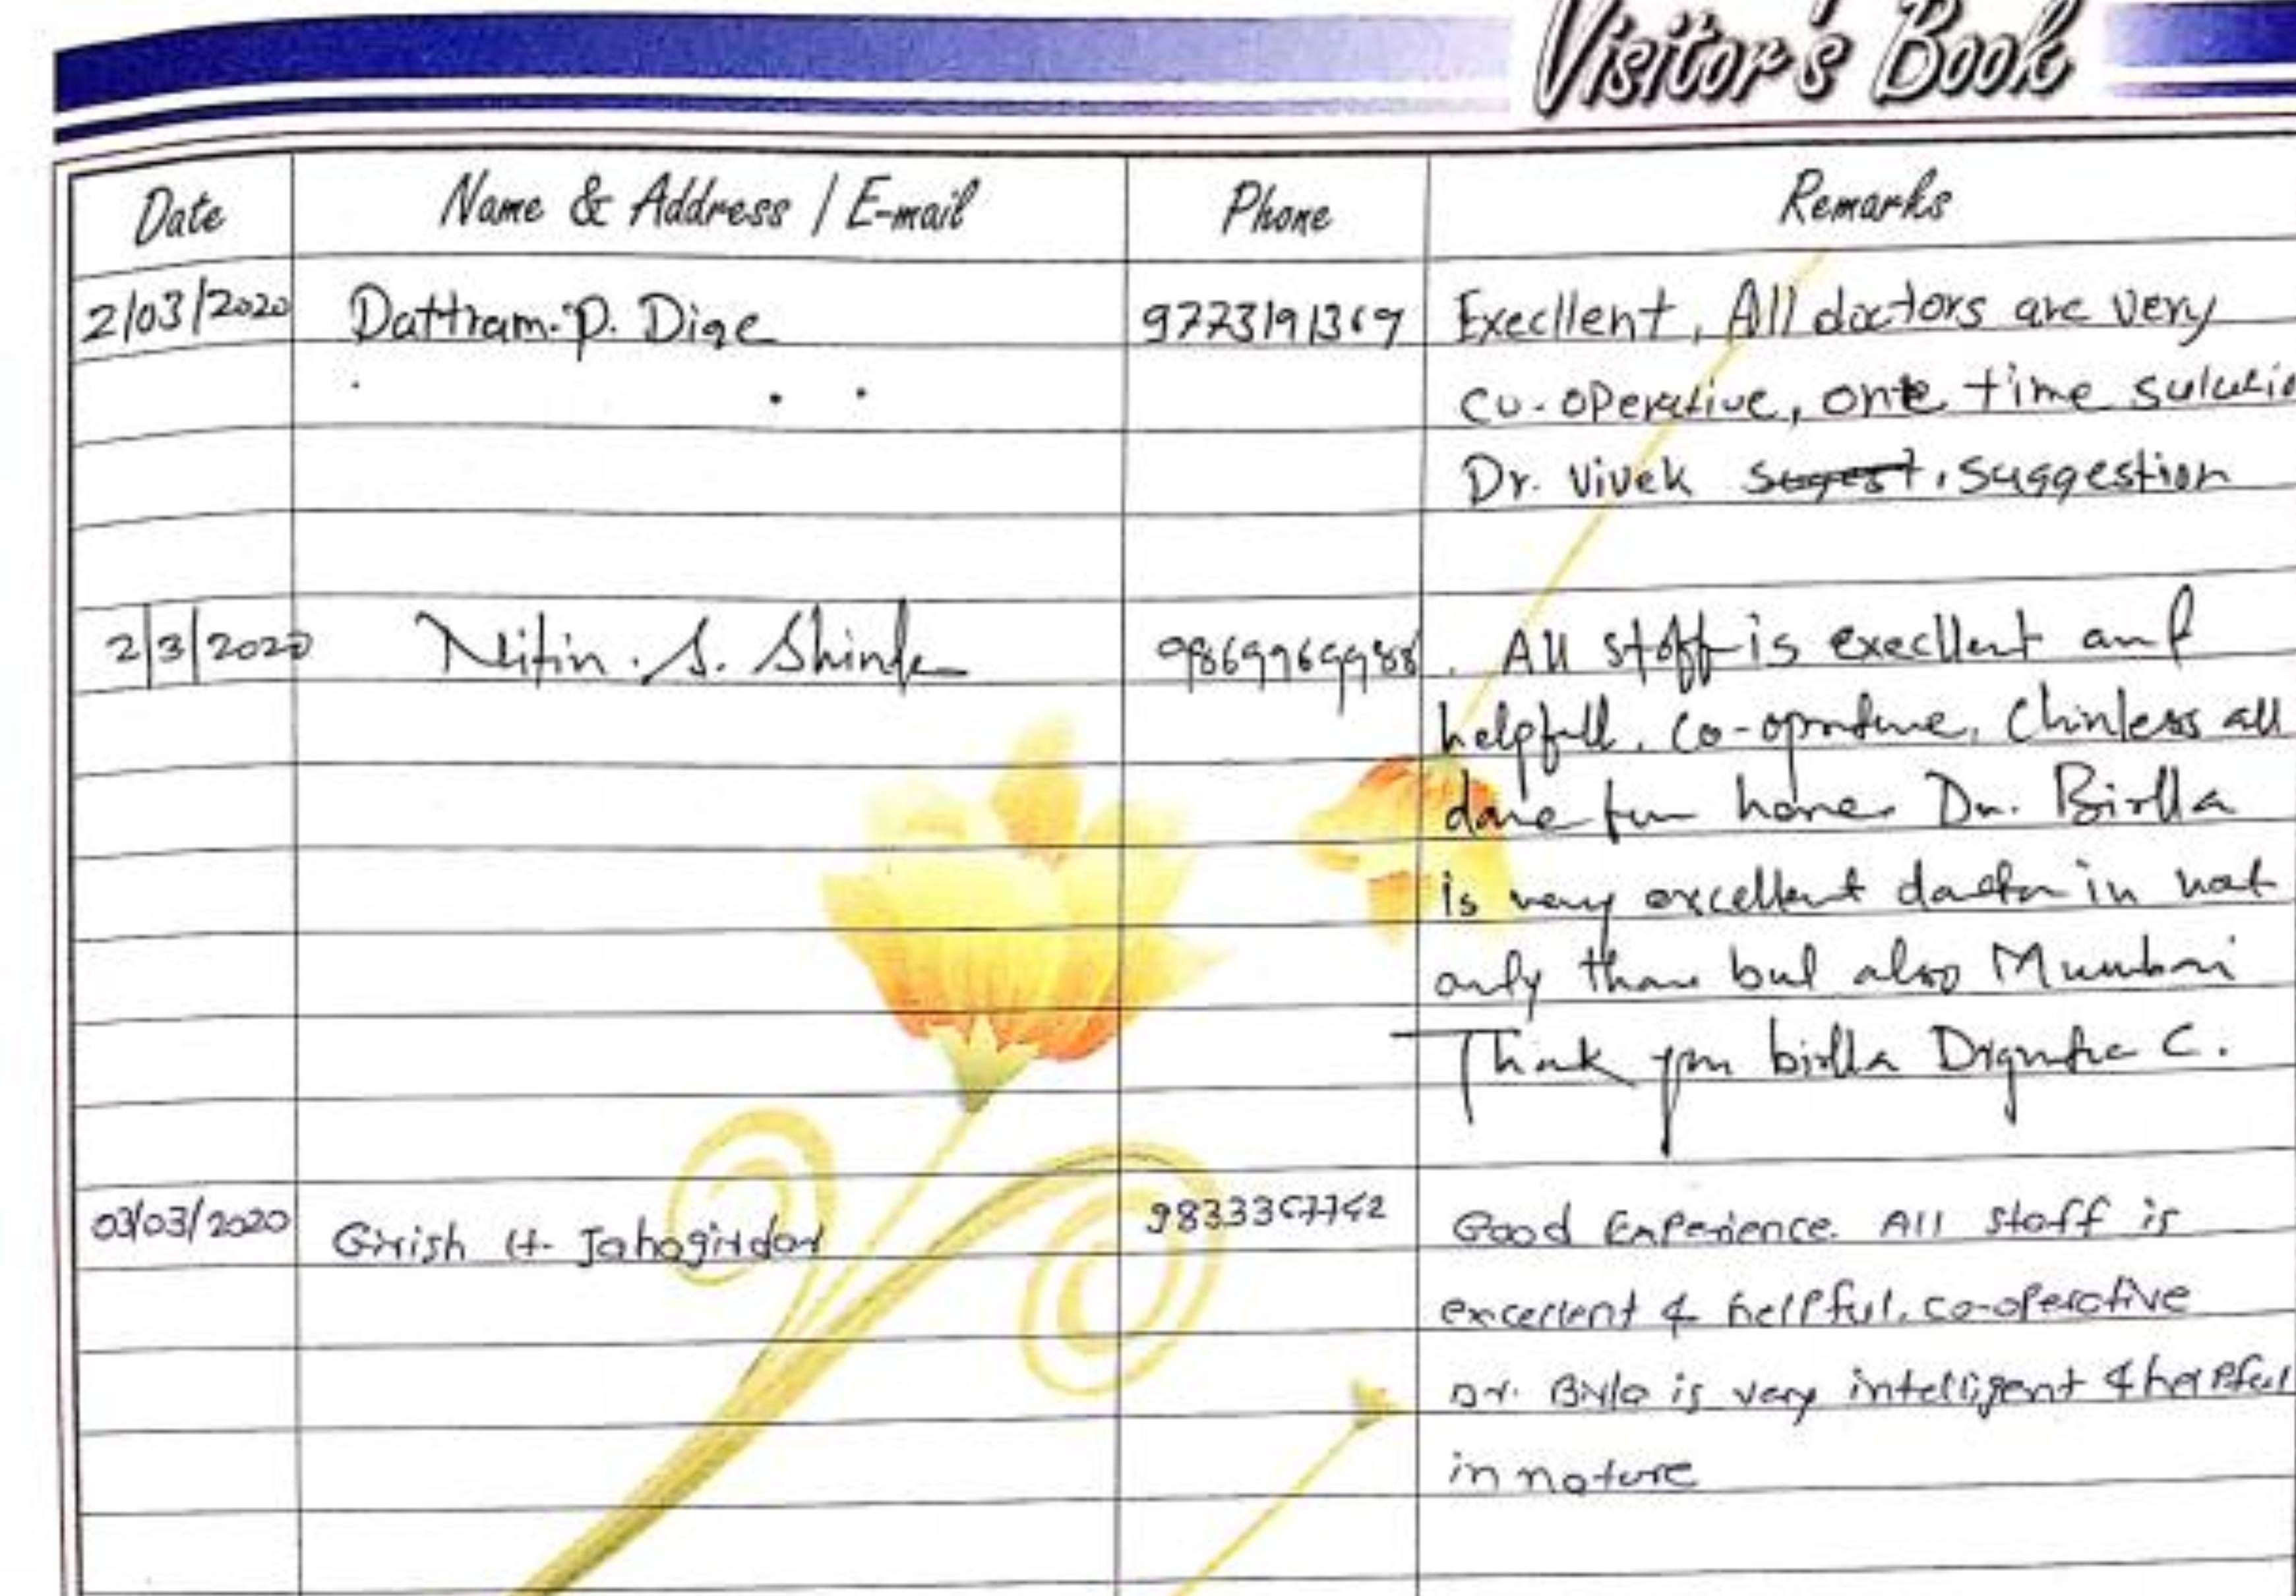 Visitor's Book
Date Name & Address / E-mail Phone Remarks
2/03/2020 Dattram. P. Dige 9773191369 Execllent, All doctors are very
co-operative, one time solutio
Dr. Vivek suggestion
2/3/2020 Nitin. S. Shinde 9869969988 All staff is execllent and
helpfull, co-oprative, all
done Dr. Birlla
is very excellent doctor in not
only thane but also Mumbai
Thank you birlla C.
03/03/2020 Girish H. Jahagirdar Good Experience. All staff is
excellent & helpful, co-operative
Dr. Birla is very intelligent & helpful
in nature